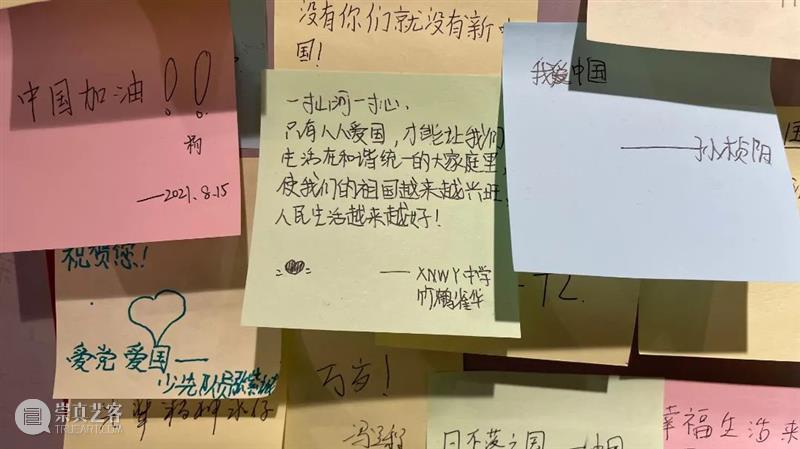 没有你们就没有新中
国！
中国加油！！
—2021.8.15
一寸山河一寸心，
只有人人爱国，才能让我们
生活在和谐统一的大家庭里，
使我们的祖国越来越兴旺，
人民生活越来越好！
——XNWY中学
我爱中国
——孙桢阳
祝贺您！
爱党 爱国——
少先队员
万岁！
日不落之国——中国
幸福生活来
崇真艺客
TRUEART.COM